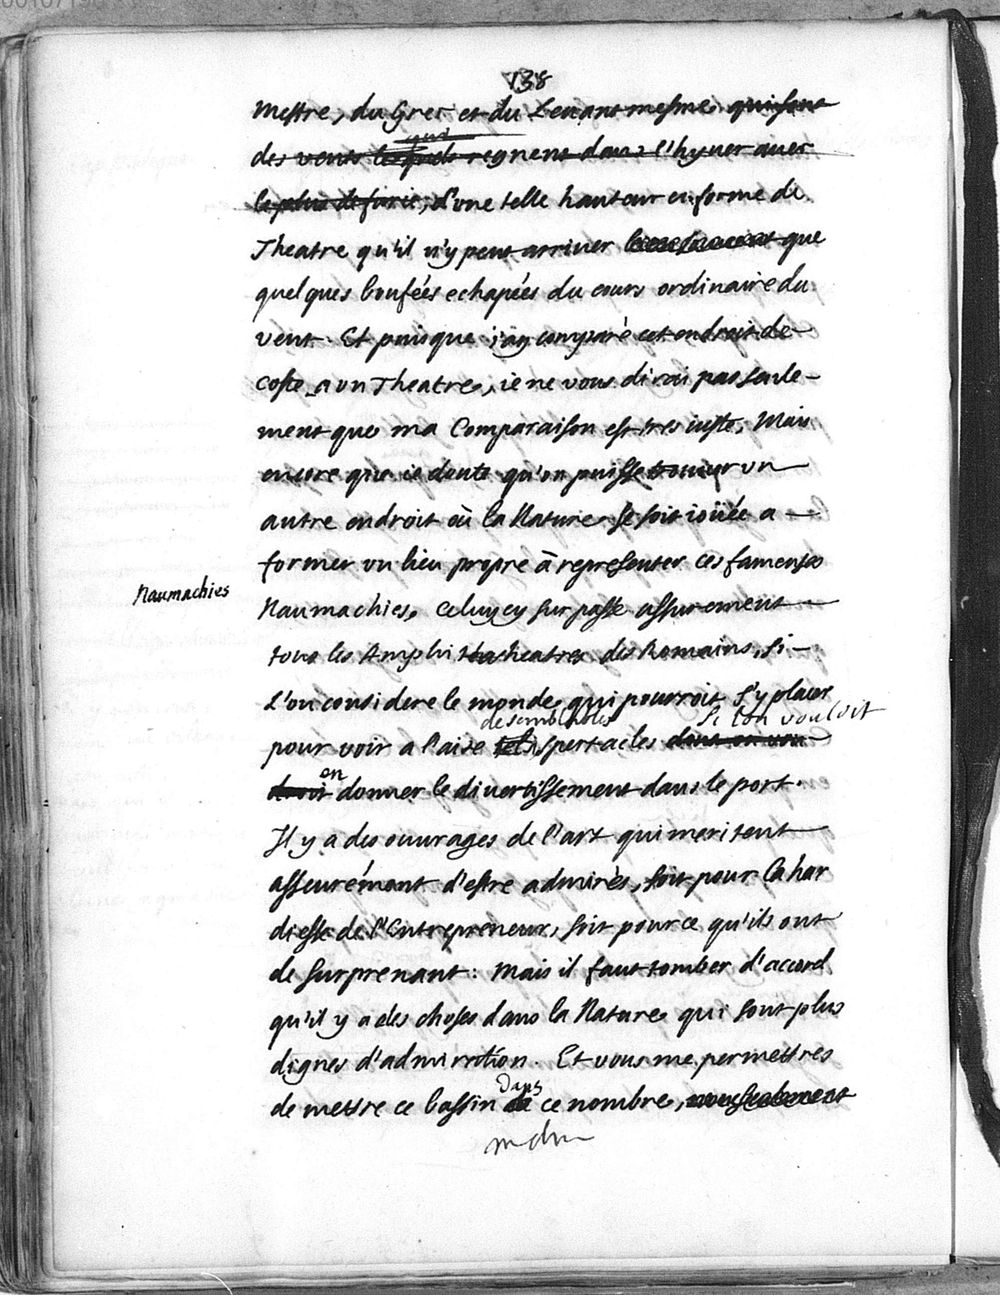 138
Mestre, du Grec et du Leuant mesme. qui sont
qui
des vents lesquels regnent dans l'hyuer auec
le plus de furie, d'une telle hauteur en forme de
Theatre qu'il n'y peut arriuer que
quelques boufées echapées du cours ordinaire du
vent. Et puisque j'ay comparé cet endroit de
coste a un Theatre, ie ne vous dirai pas seule-
ment que ma Comparaison est tres iuste, Mais
encore que ie doute qu'on puisse trouuer un
autre endroit où la Nature se soit ioüée a
former un lieu propre à representer ces fameuses
Naumachies
Naumachies, celuycy surpasse assurement
tous les Amphitheatres des Romains, si
L'on considere le monde qui pourroit s'y placer
de semblables si lon vouloit
pour voir a l'aise tels spectacles dont on vou
en
droit donner le diuertissement dans le port.
Il y a des ouurages de l'art qui meritent
asseurément d'estre admirés, soit pour la har
diesse de l'Entrepreneur, soit pource qu'ils ont
de surprenant: Mais il faut tomber d'accord
qu'il y a des choses dans la Nature qui sont plus
dignes d'admiration. Et vous me permettres
dans
de mettre ce bassin de ce nombre, nonseulement